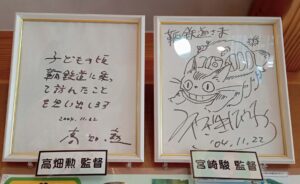 子どもの頃
鞆鉄道に乗
って訪れたこと
を思い出します
2004.11.22
高畑勲
高畑勲 監督
鞆鉄道さま
宮崎駿
'04.11.22
宮崎駿 監督